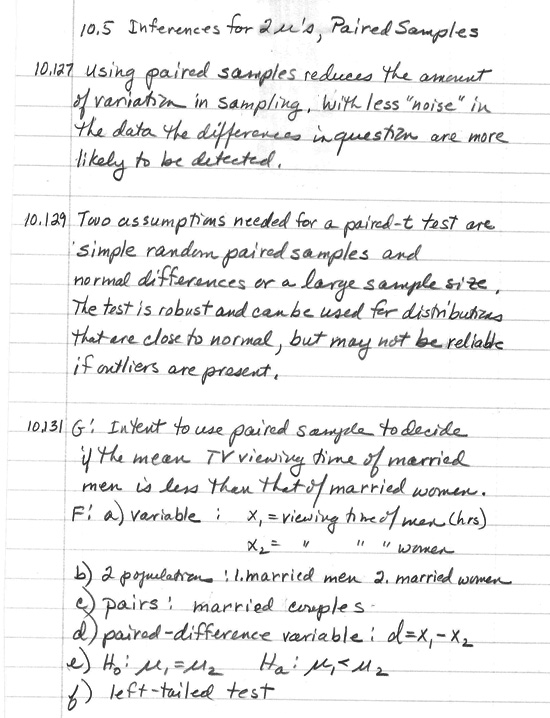 10.5 Inferences for 2 μ's, Paired Samples
10.127 Using paired samples reduces the amount
of variation in sampling. With less "noise" in
the data the differences in question are more
likely to be detected.
10.129 Two assumptions needed for a paired-t test are
simple random paired samples and
normal differences or a large sample size.
The test is robust and can be used for distributions
that are close to normal, but may not be reliable
if outliers are present.
10.131 G: Intent to use paired sample to decide
if the mean TV viewing time of married
men is less than that of married women.
F: a) variable : x₁ = viewing time of men (hrs)
x₂ = " " " women
b) 2 population : 1. married men 2. married women
c) pairs : married couples
d) paired-difference variable : d=x₁-x₂
e) H₀: μ₁=μ₂ Ha: μ₁<μ₂
f) left-tailed test